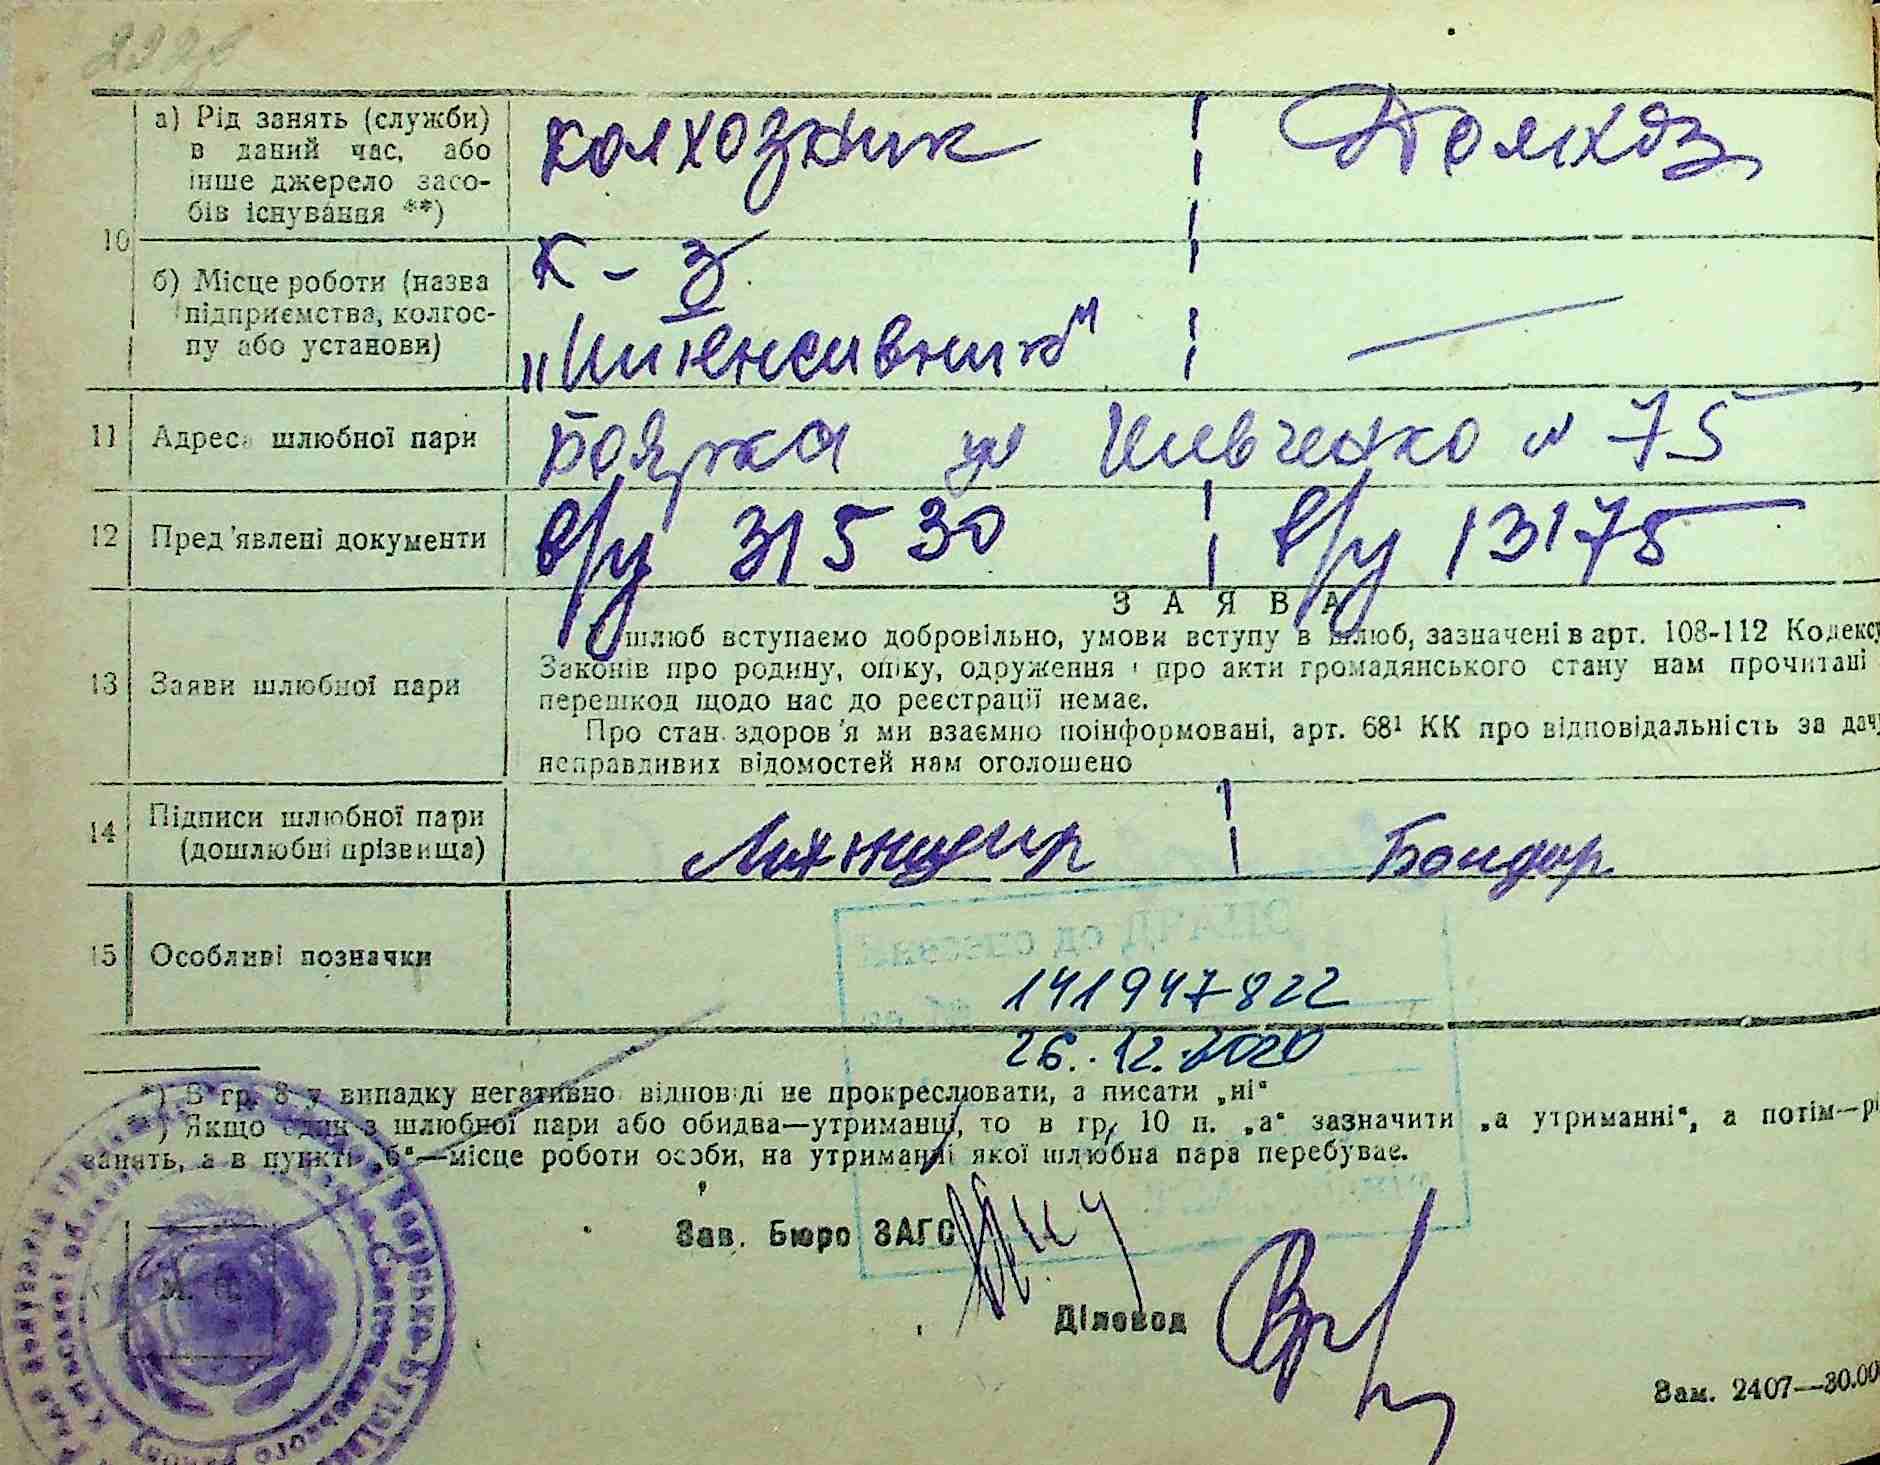 а) Рід занять (служби) в даний час, або інше джерело засобів існування **)
колхозник
Домхоз
10
б) Місце роботи (назва підприємства, колгоспу або установи)
к-з
„Интенсивник"
11 Адреса шлюбної пари
Боярка ул Шевченко № 75
12 Пред'явлені документи
в/у 31530
в/у 13175
ЗАЯВА
13 Заяви шлюбної пари
шлюб вступаємо добровільно, умови вступу в шлюб, зазначені в арт. 108-112 Кодексу
Законів про родину, опіку, одруження і про акти громадянського стану нам прочитані
перешкод щодо нас до реєстрації немає.
Про стан здоров'я ми взаємно поінформовані, арт. 68¹ КК про відповідальність за дачу
неправдивих відомостей нам оголошено
14 Підписи шлюбної пари (дошлюбні прізвища)
Бондар
15 Особливі позначки
141947822
26.12.2020
*) В гр. 8 у випадку негативно відповіді не прокреслювати, а писати „ні"
) Якщо один з шлюбної пари або обидва—утриманці, то в гр. 10 п. „а" зазначити „а утриманні", а потім—рі
занять, а в пункті „б"—місце роботи особи, на утриманні якої шлюбна пара перебуває.
Зав. Бюро ЗАГС
Діловод
М. П.
Зам. 2407—30.00